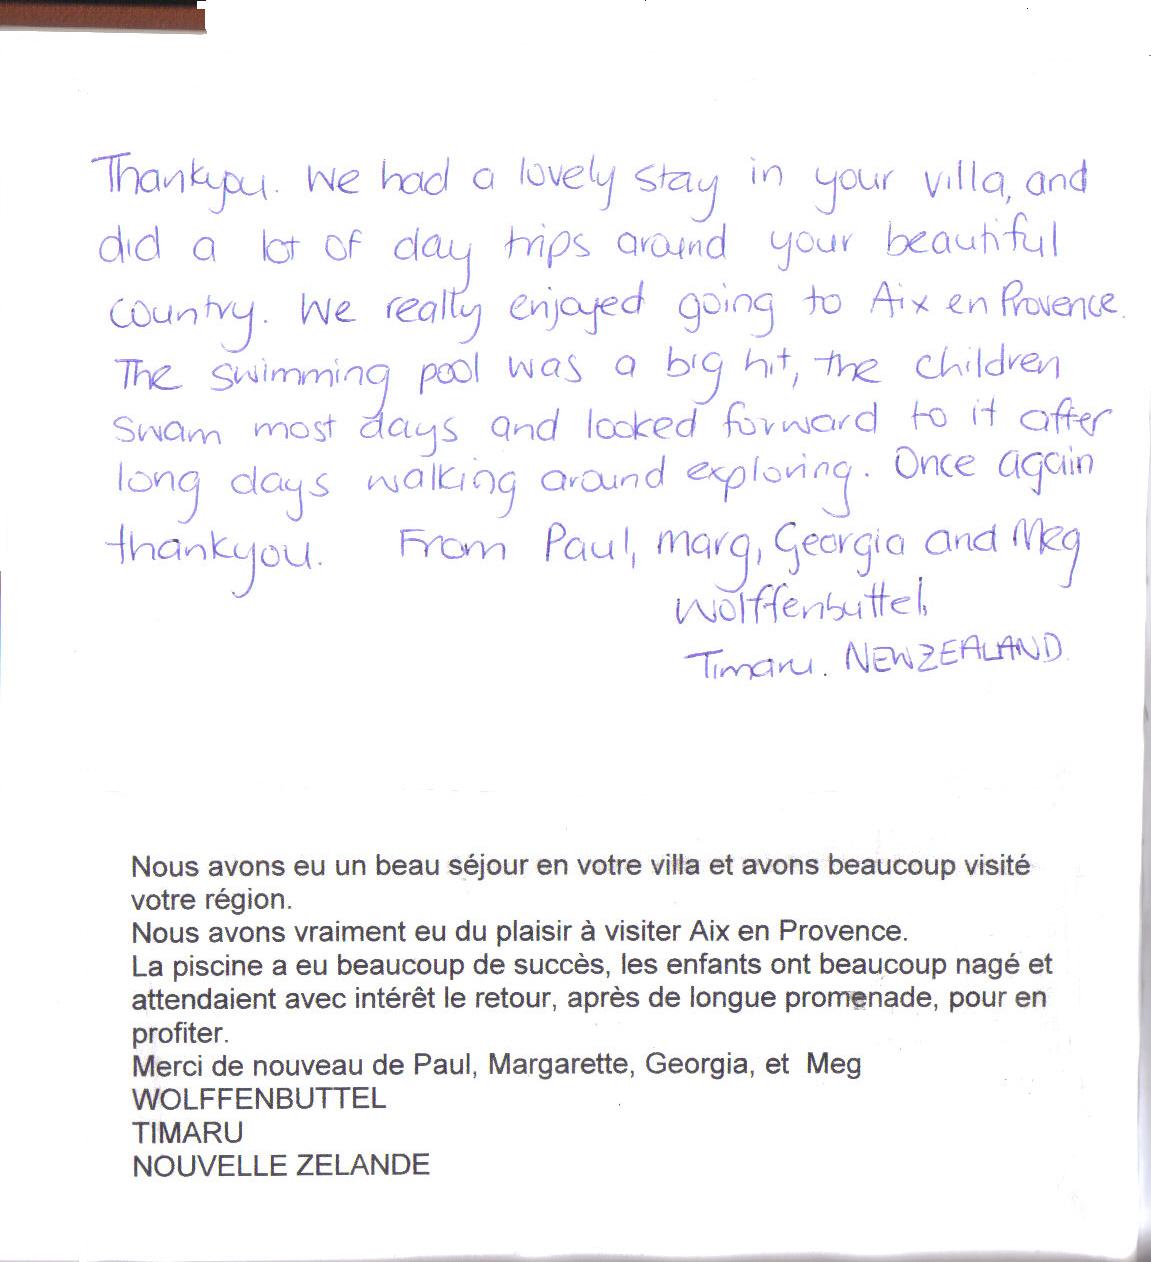 Thankyou. We had a lovely stay in your villa, and
did a lot of day trips around your beautiful
country. We really enjoyed going to Aix en Provence.
The swimming pool was a big hit, the children
swam most days and looked forward to it after
long days walking around exploring. Once again
thankyou. From Paul, Marg, Georgia and Meg
Wolffenbuttel,
Timaru. NEWZEALAND.
Nous avons eu un beau séjour en votre villa et avons beaucoup visité
votre région.
Nous avons vraiment eu du plaisir à visiter Aix en Provence.
La piscine a eu beaucoup de succès, les enfants ont beaucoup nagé et
attendaient avec intérêt le retour, après de longue promenade, pour en
profiter.
Merci de nouveau de Paul, Margarette, Georgia, et Meg
WOLFFENBUTTEL
TIMARU
NOUVELLE ZELANDE